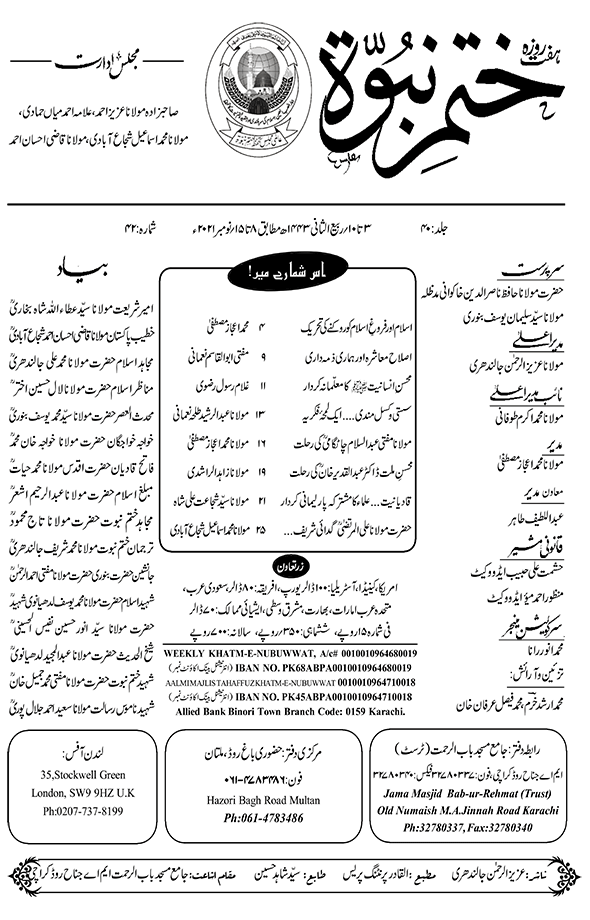 ہفت روزہ
ختم نبوۃ
مجلس ادارت
صاحبزادہ مولانا عزیز احمد، علامہ احمد میاں حمادی،
مولانا محمد اسماعیل شجاع آبادی، مولانا قاضی احسان احمد
جلد: ۴۰
۳ تا ۱۰/ ربیع الثانی ۱۴۴۳ھ مطابق ۸ تا ۱۵/ نومبر ۲۰۲۱ء
شمارہ: ۴۲
سرپرست
حضرت مولانا حافظ ناصر الدین خاکوانی مدظلہ
مولانا سید سلیمان یوسف بنوری
مدیر اعلیٰ
مولانا عزیز الرحمٰن جالندھری
نائب مدیر اعلیٰ
مولانا محمد اکرم طوفانی
مدیر
مولانا محمد اعجاز مصطفیٰ
معاون مدیر
عبداللطیف طاہر
قانونی مشیر
حشمت علی حبیب ایڈووکیٹ
منظور احمد میؤ ایڈووکیٹ
سرکولیشن منیجر
محمد انور رانا
تزئین و آرائش:
محمد ارشد خرم، محمد فیصل عرفان خان
اس شمارے میں!
اسلام اور فروغِ اسلام کو روکنے کی تحریک ۴ محمد اعجاز مصطفیٰ
اصلاحِ معاشرہ اور ہماری ذمہ داری ۹ مفتی ابوالقاسم نعمانی
محسنِ انسانیت ﷺ کا معلمانہ کردار ۱۱ غلام رسول رضوی
سستی و کسل مندی... ایک لمحۂ فکریہ ۱۳ مولانا عبدالرشید طلحہ نعمانی
مولانا مفتی عبدالسلام چاٹگامی کی رحلت ۱۶ مولانا محمد اعجاز مصطفیٰ
محسنِ ملت ڈاکٹر عبدالقدیر خان کی رحلت ۱۹ مولانا زاہد الراشدی
قادیانیت... علماء کا مشترکہ پارلیمانی کردار ۲۱ مولانا سید شجاعت علی شاہ
حضرت مولانا علی المرتضیٰ گدائی شریف... ۲۵ مولانا محمد اسماعیل شجاع آبادی
زرتعاون
امریکا، کینیڈا، آسٹریلیا: ۱۰۰ ڈالر یورپ، افریقہ: ۸۰ ڈالر، سعودی عرب،
متحدہ عرب امارات، بھارت، مشرق وسطیٰ، ایشیائی ممالک: ۷۰ ڈالر
فی شمارہ ۱۵ روپے، ششماہی: ۳۵۰ روپے، سالانہ: ۷۰۰ روپے
WEEKLY KHATM-E-NUBUWWAT, A/c# 0010010964680019
IBAN NO. PK68ABPA0010010964680019 (انٹرنیشنل بینک اکاؤنٹ نمبر)
AALMIMAJLIS TAHAFFUZKHATM-E-NUBUWWAT 0010010964710018
IBAN NO. PK45ABPA0010010964710018 (انٹرنیشنل بینک اکاؤنٹ نمبر)
Allied Bank Binori Town Branch Code: 0159 Karachi.
بیاد
امیر شریعت مولانا سید عطاء اللہ شاہ بخاریؒ
خطیب پاکستان مولانا قاضی احسان احمد شجاع آبادیؒ
مجاہد اسلام حضرت مولانا محمد علی جالندھریؒ
مناظر اسلام حضرت مولانا لال حسین اخترؒ
محدث العصر حضرت مولانا سید محمد یوسف بنوریؒ
خواجہ خواجگان حضرت مولانا خواجہ خان محمدؒ
فاتح قادیان حضرت اقدس مولانا محمد حیاتؒ
مبلغ اسلام حضرت مولانا عبدالرحیم اشعرؒ
مجاہد ختم نبوت حضرت مولانا تاج محمودؒ
ترجمان ختم نبوت حضرت مولانا محمد شریف جالندھریؒ
جانشین حضرت بنوری حضرت مولانا مفتی احمد الرحمٰنؒ
شہید اسلام حضرت مولانا محمد یوسف لدھیانوی شہیدؒ
حضرت مولانا سید انور حسین نفیس الحسینیؒ
شیخ الحدیث حضرت مولانا عبدالمجید لدھیانویؒ
شہید ختم نبوت حضرت مولانا مفتی محمد جمیل خانؒ
شہید ناموس رسالت مولانا سعید احمد جلال پوریؒ
رابطہ دفتر: جامع مسجد باب الرحمت (ٹرسٹ)
ایم اے جناح روڈ کراچی، فون: ۳۲۷۸۰۳۳۷ فیکس: ۳۲۷۸۰۳۴۰
Jama Masjid Bab-ur-Rehmat (Trust)
Old Numaish M.A.Jinnah Road Karachi
Ph:32780337, Fax:32780340
مرکزی دفتر: حضوری باغ روڈ، ملتان
فون: ۰۶۱-۴۷۸۳۴۸۶
Hazori Bagh Road Multan
Ph:061-4783486
لندن آفس:
35,Stockwell Green
London, SW9 9HZ U.K
Ph:0207-737-8199
ناشر: عزیز الرحمٰن جالندھری مطبع: القادر پرنٹنگ پریس طابع: سید شاہد حسین مقام اشاعت: جامع مسجد باب الرحمت ایم اے جناح روڈ کراچی